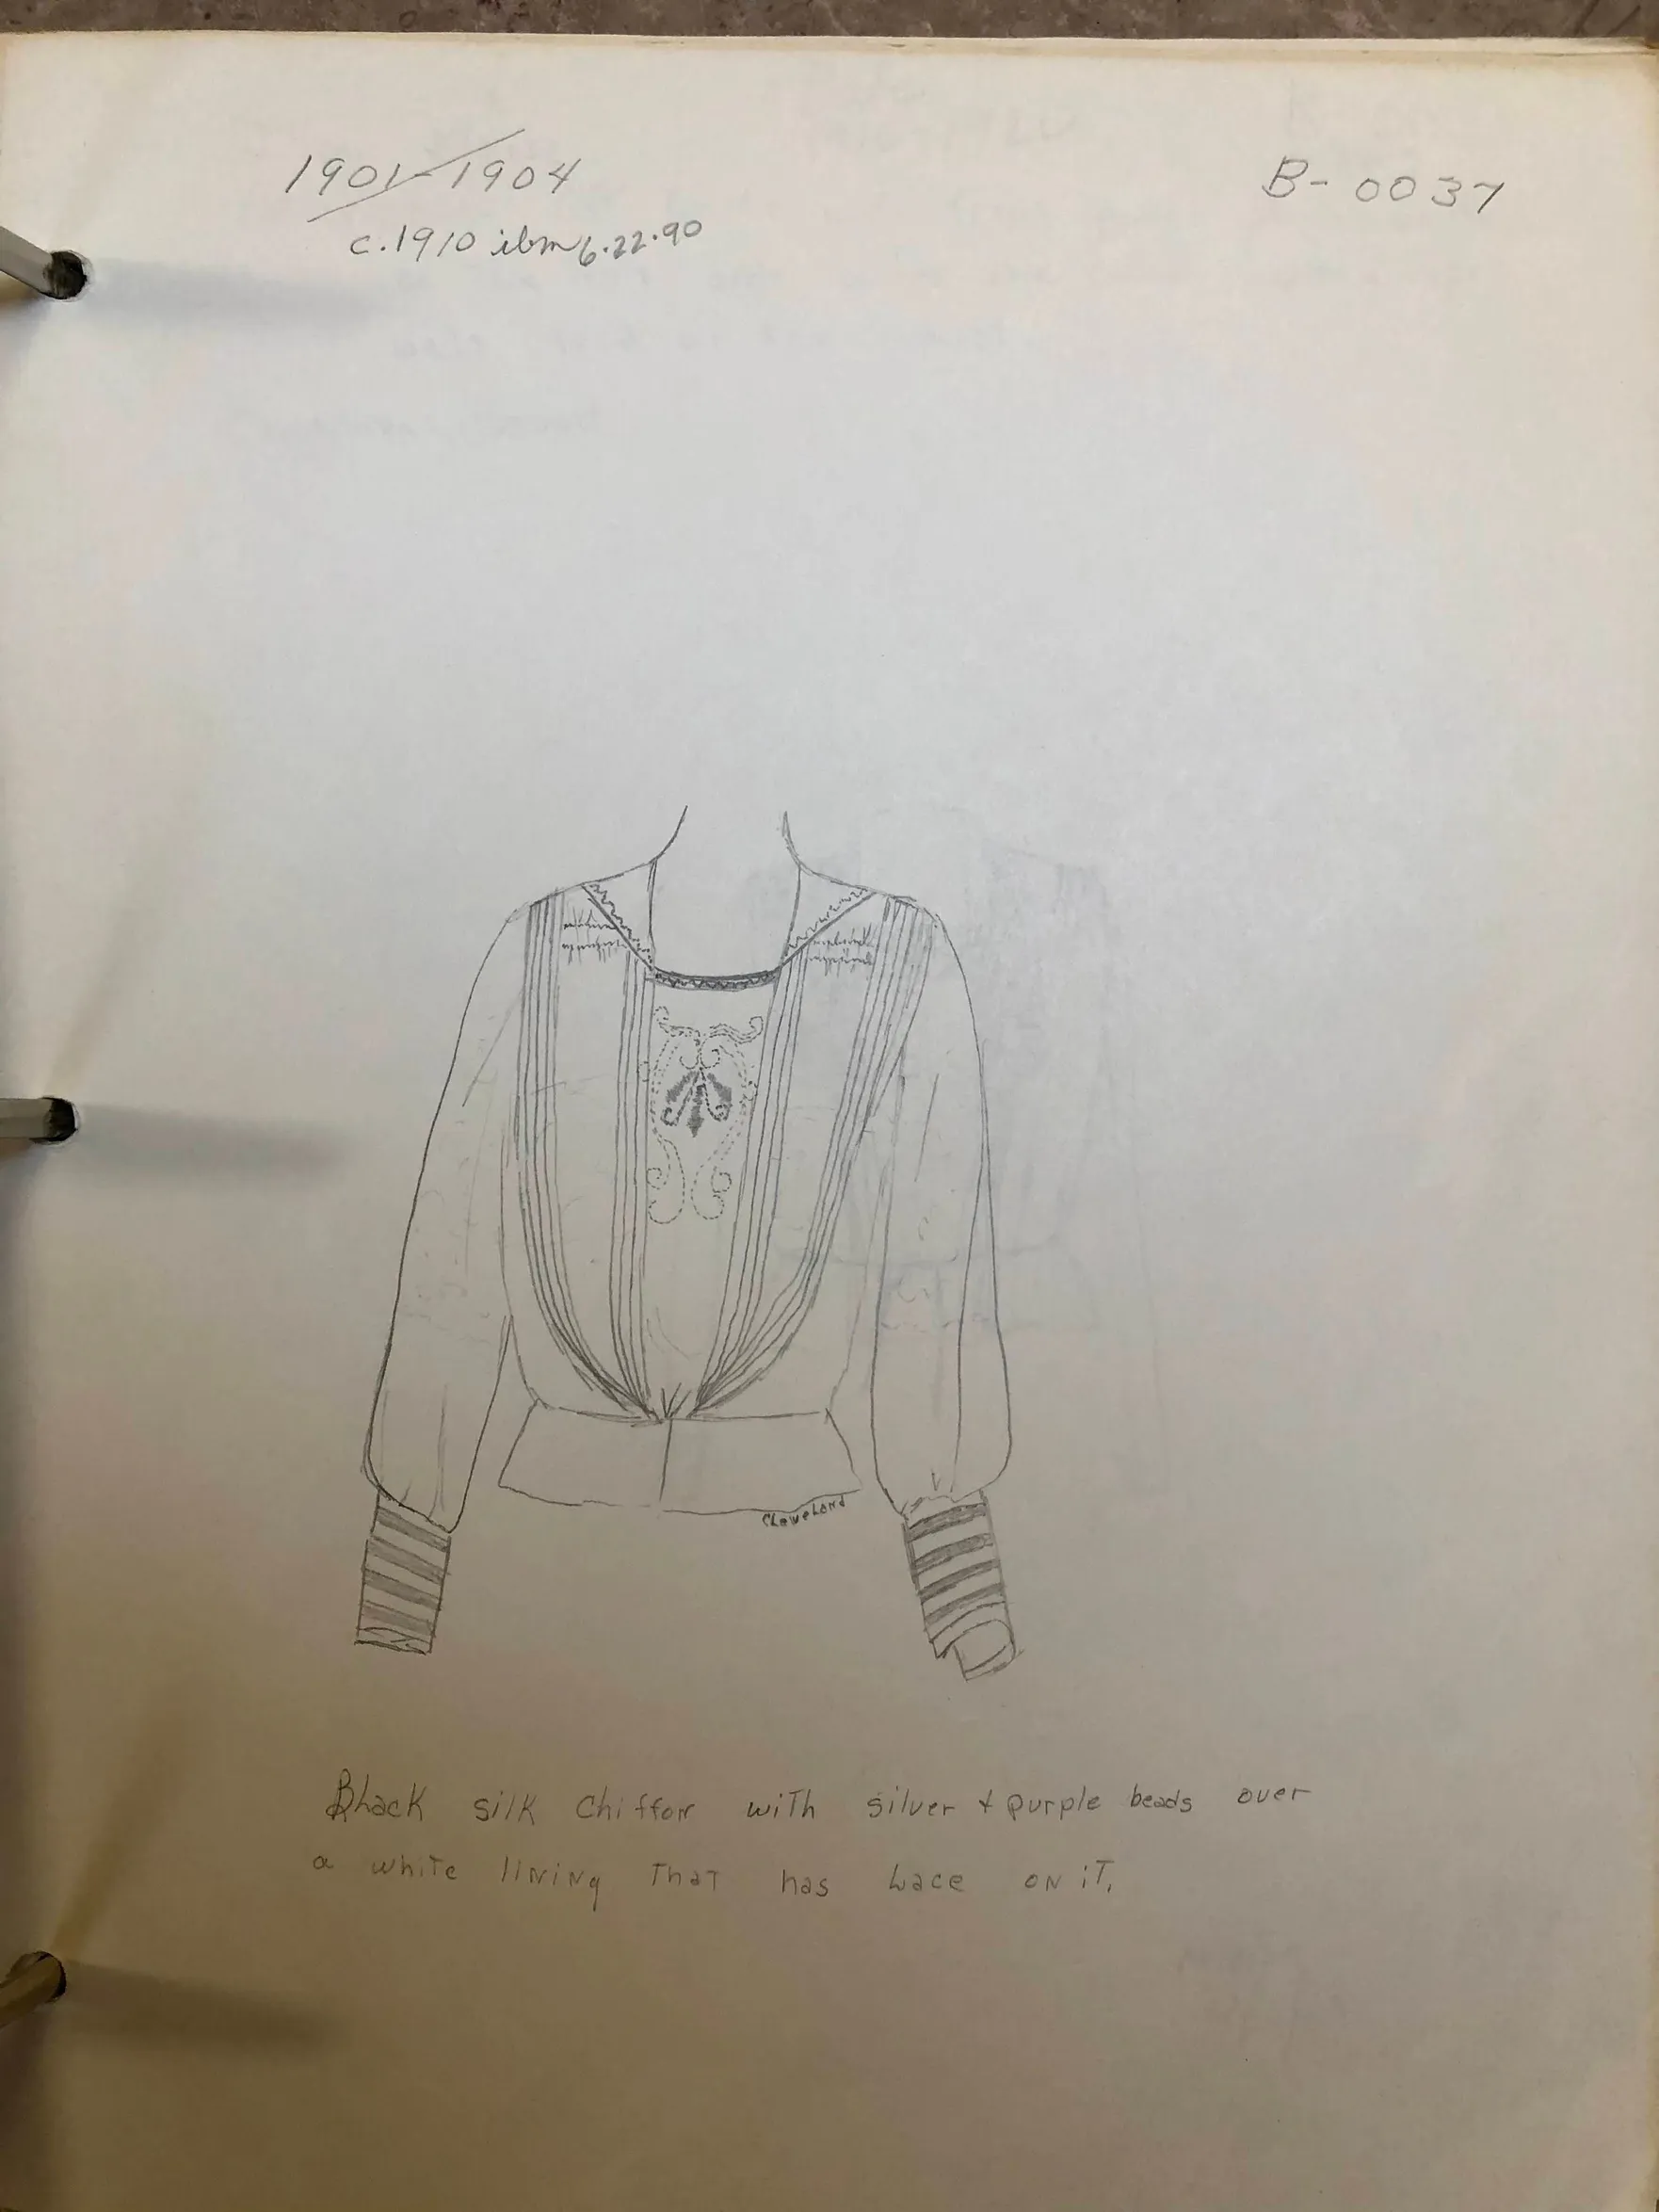 1901-1904
B-0037
c.1910 ibm 6.22.90
CLeveLand
BLack silk Chiffon with silver + purple beads over
a white lining That has Lace on iT.